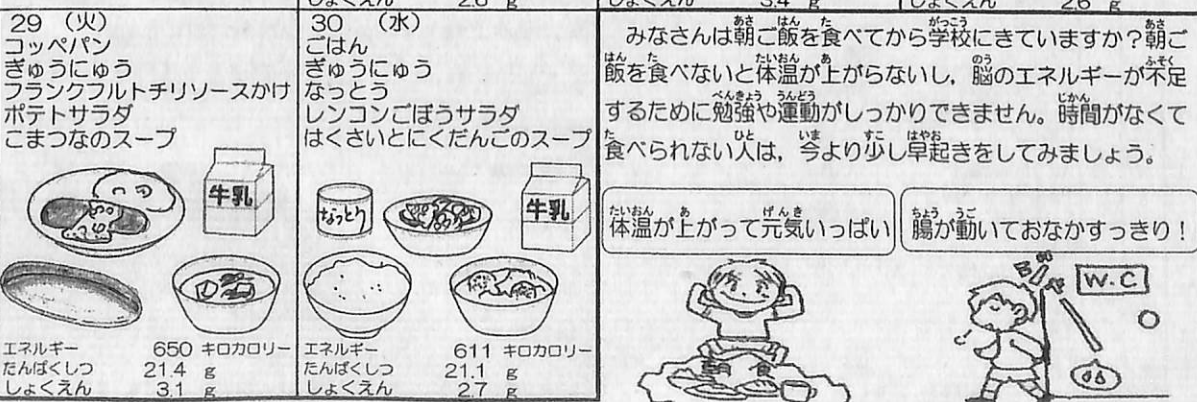 しょくえん 2.8 g
しょくえん 3.4 g
しょくえん 2.6 g
29 (火)
コッペパン
ぎゅうにゅう
フランクフルトチリソースかけ
ポテトサラダ
こまつなのスープ
牛乳
エネルギー 650 キロカロリー
たんぱくしつ 21.4 g
しょくえん 3.1 g
30 (水)
ごはん
ぎゅうにゅう
なっとう
レンコンごぼうサラダ
はくさいとにくだんごのスープ
なっとう
牛乳
エネルギー 611 キロカロリー
たんぱくしつ 21.1 g
しょくえん 2.7 g
みなさんは朝ご飯を食べてから学校にきていますか?朝ご
飯を食べないと体温が上がらないし,脳のエネルギーが不足
するために勉強や運動がしっかりできません。時間がなくて
食べられない人は,今より少し早起きをしてみましょう。
体温が上がって元気いっぱい
朝食
腸が動いておなかすっきり!
W.C